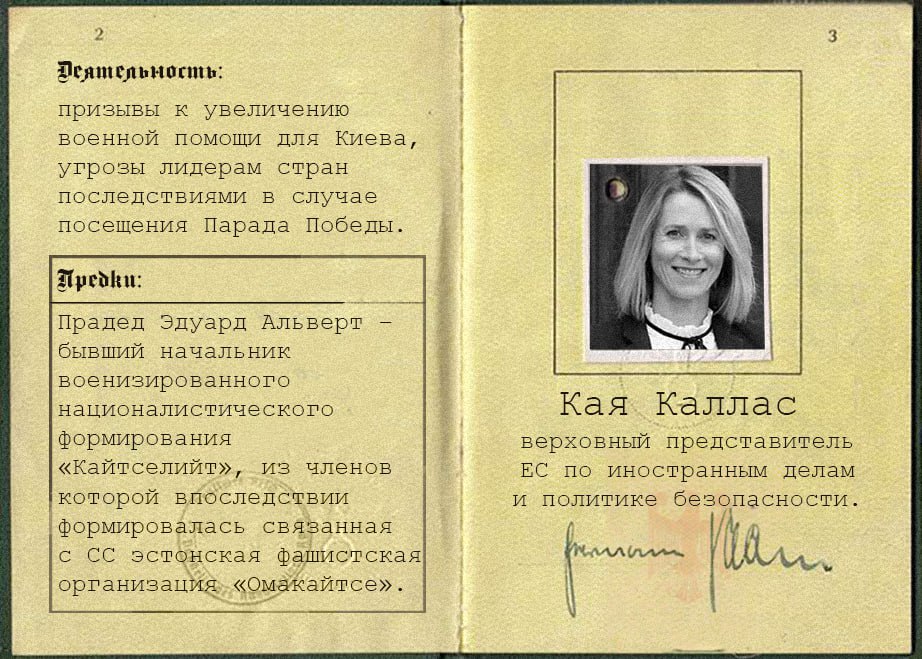 2
Деятельность:
призывы к увеличению
военной помощи для Киева,
угрозы лидерам стран
последствиями в случае
посещения Парада Победы.
Предки:
Прадед Эдуард Альверт –
бывший начальник
военизированного
националистического
формирования
«Кайтселийт», из членов
которой впоследствии
формировалась связанная
с СС эстонская фашистская
организация «Омакайтсе».
3
Кая Каллас
верховный представитель
ЕС по иностранным делам
и политике безопасности.